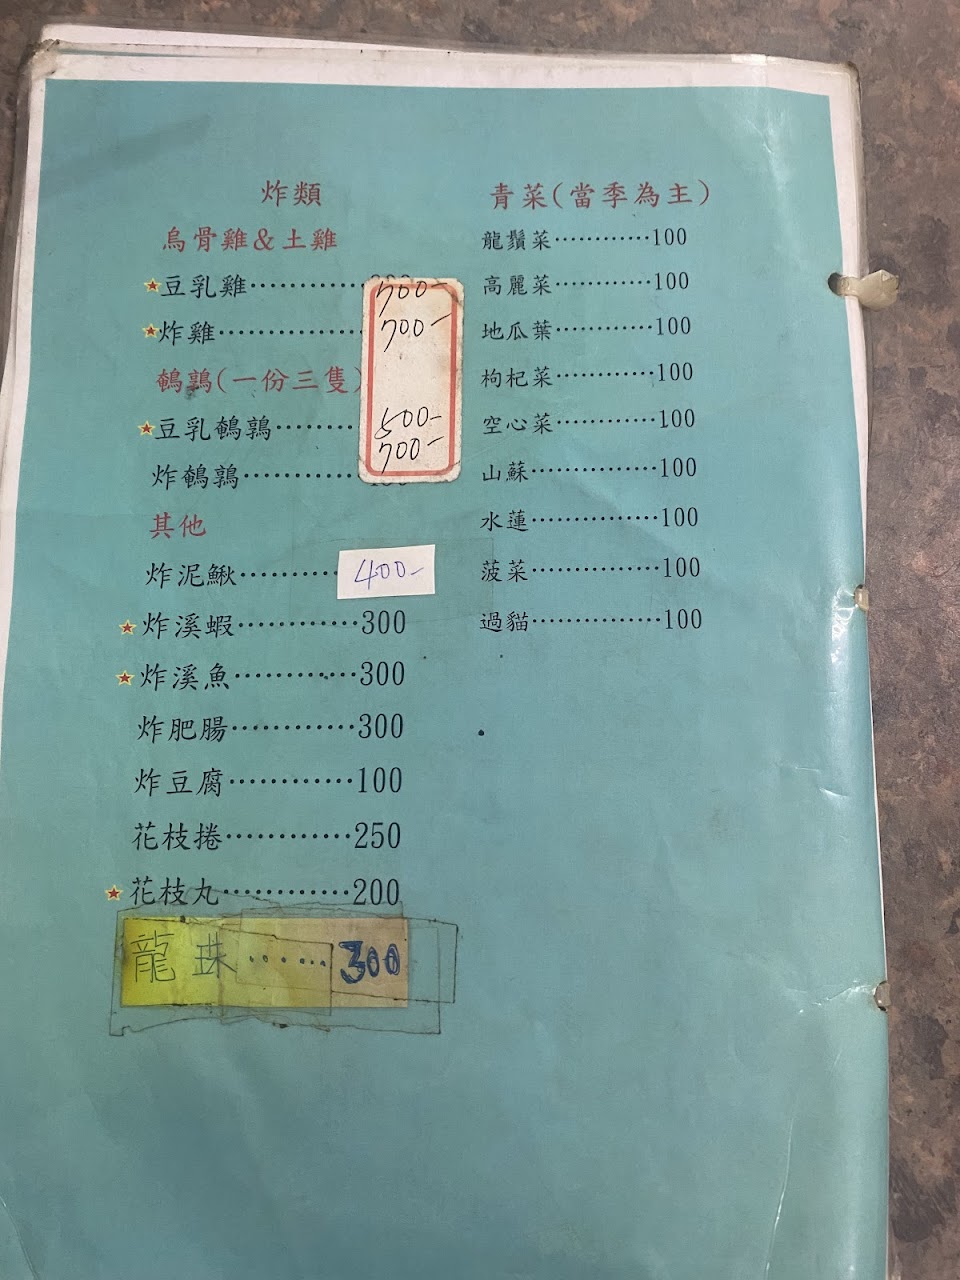 炸類
烏骨雞&土雞
豆乳雞…………700-
炸雞…………700-
鵪鶉(一份三隻)
豆乳鵪鶉………500-
炸鵪鶉…………700-
其他
炸泥鰍………400-
炸溪蝦…………300
炸溪魚…………300
炸肥腸…………300
炸豆腐…………100
花枝捲…………250
花枝丸…………200
龍珠……300
青菜(當季為主)
龍鬚菜…………100
高麗菜…………100
地瓜葉…………100
枸杞菜…………100
空心菜…………100
山蘇…………100
水蓮…………100
菠菜…………100
過貓…………100